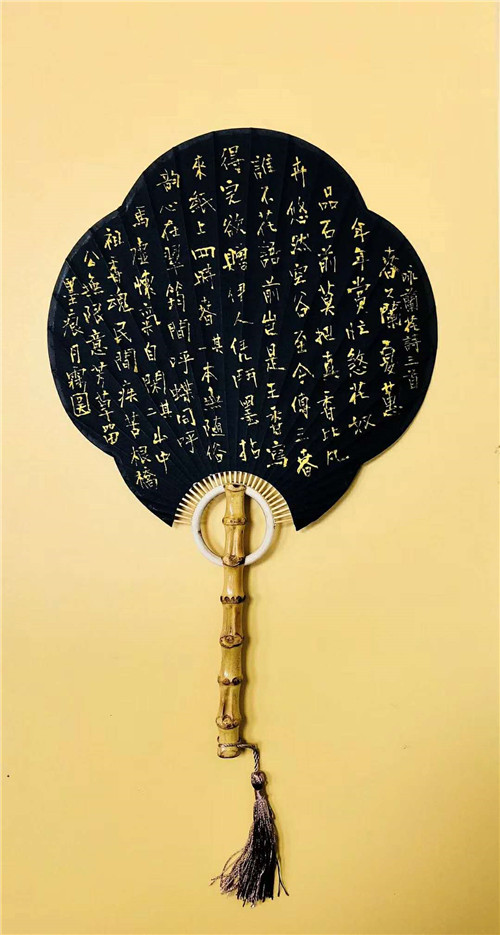 咏蘭花詩三首
春蘭夏蕙
年年賞注悠花放
品石前莫把真香比凡
卉悠然空谷至今傳三春
誰不花語前岂是王香寫
得完欲贈伊人倩鬥墨拈
來紙上四時春其一本與隨俗
韵心在翠鈞間呼蝶同呼
馬虛懐氣自閑其二山中
祖香魂民間疾苦根橋
公無限意芳草留
墨痕月